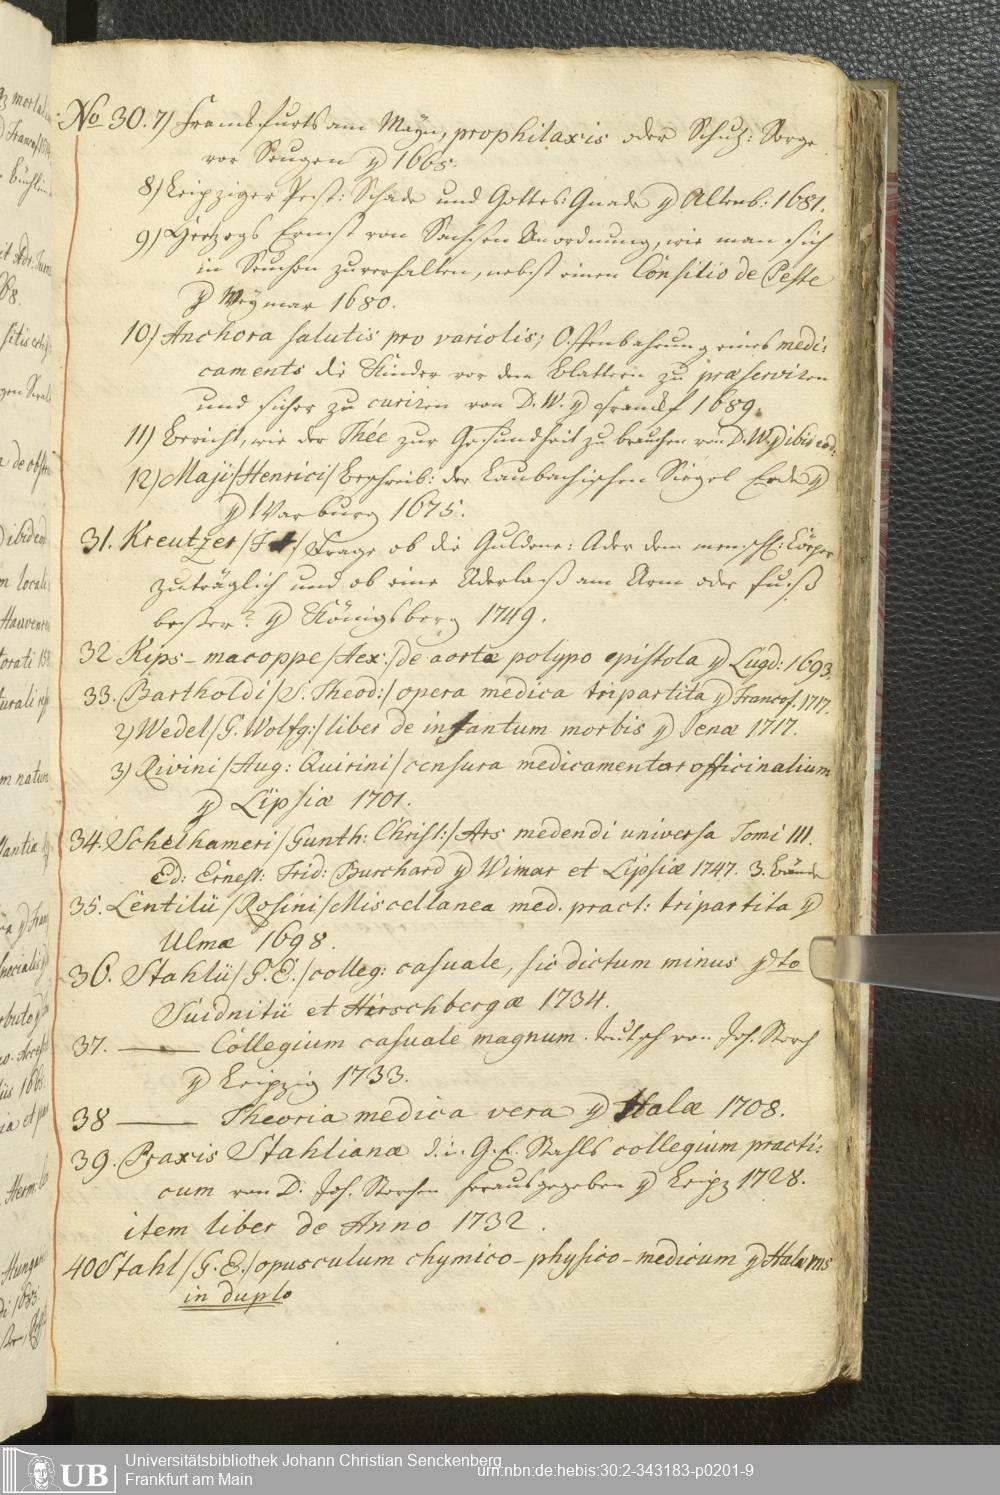 No 30. 7) Franckfurts am Mayn, prophilaxis oder Schutz: Sorge
vor Seugen ꝑ 1665.
8) Leipziger Pest: Schade und Gottes: Gnade ꝑ Altenb: 1681.
9) Hertzogs Ernst von Sachsen Anordnung, wie man sich
in Seuchen zuverhalten, nebst einen Consilio de Peste
ꝑ Weymar 1680.
10) Anchora salutis pro variolis; Offenbahrung eines medi:
caments die Kinder vor dem Blattern zu præserviren
und sicher zu curiren von D. W. ꝑ Franckf 1689.
11) Bericht, wie der Thée zur Gesundheit zu brauchen von D. W. ꝑ ibid eod:
12) Maji /Henrici/ Beschreib: der Laubachischen Siegel Erde ꝑ
ꝑ Marburg 1675.
31. Kreutzer / Frage ob die Guldene: Ader dem menschl: Cörper
zuträglich und ob eine Aderlaß am Arm oder Fuß
besser? ꝑ Königsberg 1749.
32 Kips-macoppe /Aex:/ de aorta polypo epistola ꝑ Lugd: 1693.
33. Bartholdi /S. Theod:/ opera medica tripartita ꝑ Francof. 1717.
2) Wedel /G. Wolfg:/ liber de infantum morbis ꝑ Jenæ 1717.
3) Rivini /Aug: Quirini/ censura medicamentor officinalium
ꝑ Lipsiæ 1701.
34. Schelhameri /Gunth: Christ:/ Ars medendi universa Tomi III.
Ed: Ernest: Frid: Burchard ꝑ Wimar et Lipsiæ 1747. 3. Bände
35. Lentilii /Rosini/ Miscellanea med. pract: tripartita ꝑ
Ulmæ 1698.
36. Stahlii /G. E./ colleg: casuale, sic dictum minus ꝑ 4to
Suidnitii et Hirschbergæ 1734.
37. ——— Collegium casuale magnum. teutsch von Joh. Storch
ꝑ Leipzig 1733.
38 ——— Theoria medica vera ꝑ Halæ 1708.
39. Praxis Stahliana d. i. G. E. Stahls collegium practi:
cum von D. Joh. Storchen herausgegeben ꝑ Leipz 1728.
item liber de Anno 1732.
40 Stahl /G. E./ opusculum chymico-physico-medicum ꝑ Halæ
in duplo
UB
Universitätsbibliothek Johann Christian Senckenberg
Frankfurt am Main
urn:nbn:de:hebis:30:2-343183-p0201-9